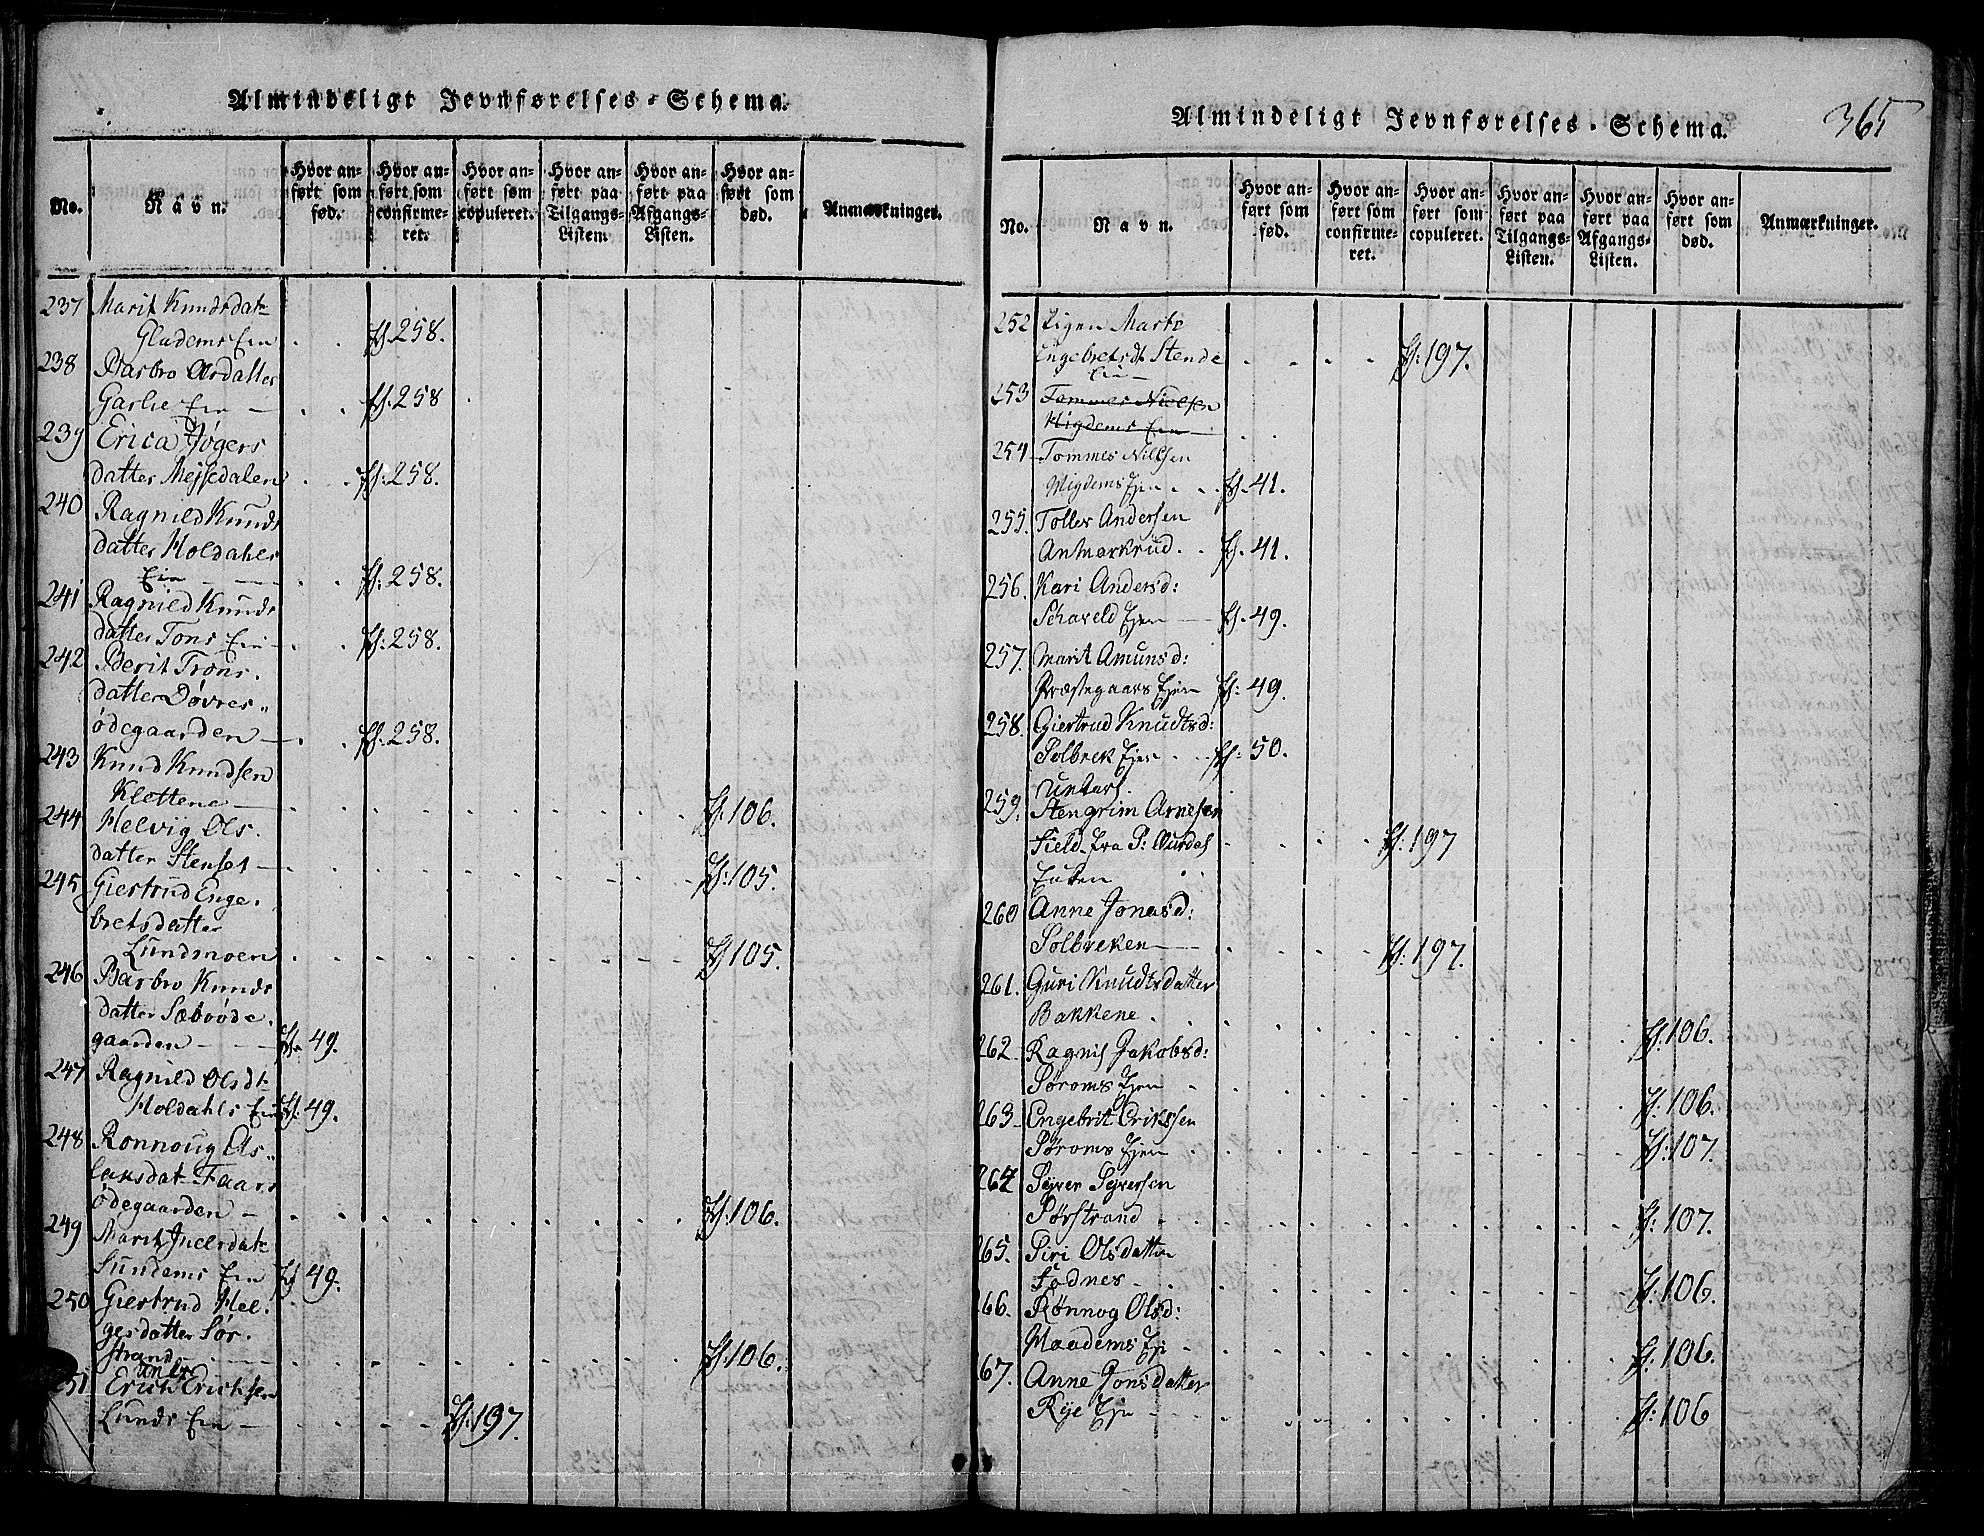 Almindeligt Jevnførelses-Schema.
No.
Navn.
Hvor anført som fød.
Hvor anført som confirmeret.
Hvor anført som copuleret.
Hvor anført paa Tilgangs-Listen.
Hvor anført paa Afgangs-Listen.
Hvor anført som død.
Anmærkninger.
237 Marit Knudsdat
Gladems Ein . . 258.
238 Barbro Ardatter
Garlie Ein — . . 258
239 Erica Jøgers
datter Mejsedalen . . 258.
240 Ragnild Knuds
datter Holdahls
Ein . . 258.
241 Ragnild Knuds
datter Tons Ein . . 258.
242 Berit Trons.
datter Døvres„
ødegaarden . . 258.
243 Knud Knudsen
Klettene — 106.
244 Helvig Ols.
datter Stenset — 105.
245 Giertrud Enge.
bretsdatter
Lundmoen 105.
246 Barbro Knuds
datter Sæbøøde.
gaarden — 49.
247 Ragnild Olsdt
Holdahls Ein 49.
248 Ronnoug As„
laksdat Faars
ødegaarden — 106.
249 Marit
Sundems Ein 49.
250 Giertrud Hel.
gesdatter Sør.
strand 106.
251 Erich Erichsen
Lunds Ein — 197.
Almindeligt Jevnførelses-Schema.
365
No.
Navn.
Hvor anført som fød.
Hvor anført som confirmeret.
Hvor anført som copuleret.
Hvor anført paa Tilgangs-Listen.
Hvor anført paa Afgangs-Listen.
Hvor anført som død.
Anmærkninger.
252 Pigen Marte
Engebretsdt Stende 197.
Ein —
253 Tommes Nielsen
Migdems Ein
254 Tommes Nielsen
Migdems Ejen . . 41.
255. Tolles Andersen
Anmarkrud . . 41.
256. Kari Andersd:
Schaveld Ejen — 49.
257. Marit Amunsd:
Præstegaars Ejen 49.
258. Giertrud Knudtsd:
Solbrek Ejen . . 50.
259. Stengrim Arnesen
Field fra 197
260 Anne Jonasd:
Solbreken — 197.
261. Guri Knudtsdatter
Bakkene . 106.
262 Ragnil Jakobsd:
Søroms Ejen 106.
263 Engebrit Erikssen
Søroms Ejen . 107.
264 Syver Syversen
Sørstrand . 107.
265. Siri Olsdatter
Fodnes . 106.
266. Rønnog Olsd:
Maadems Ej 106.
267. Anne Jonsdatter
Rye Ejn 106